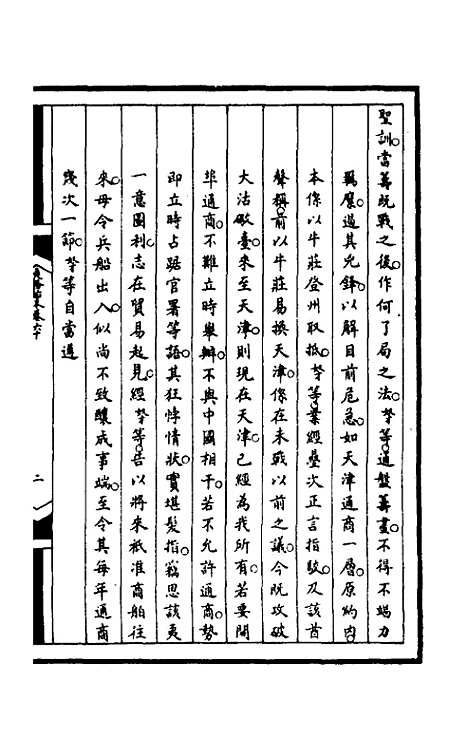 聖訓當籌既戰之後作何了局之法等等通盤籌畫不得不竭力
羈縻過其兇鋒以解目前危急如天津通商一層原約內
本係以牛莊登州取抵等等業經疊次正言指駮及該酋
聲稱前以牛莊易換天津係在未戰以前之議今既攻破
大沽礮臺來至天津則現在天津已經為我所有若要開
埠通商不難立時舉辦不與中國相干若不允許通商勢
即立時占踞官署等語其狂悖情狀實堪髮指竊思該夷
一意圖利志在貿易起見經等等告以將來祇准商舶往
來毋令兵船出入似尚不致釀成事端至令其每年通商
幾次一節等等自當遵
二